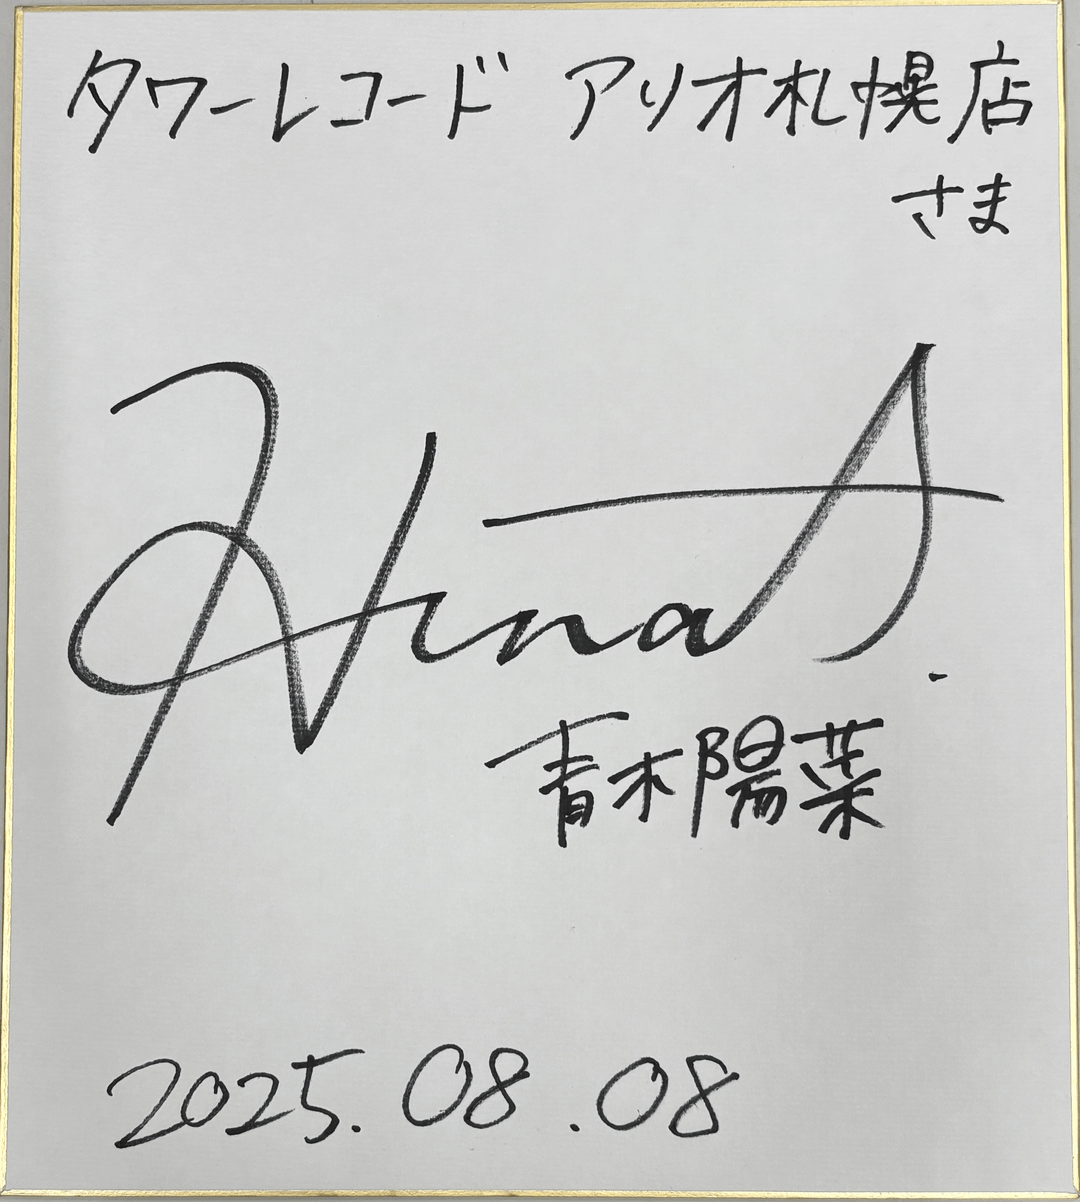 タワーレコード アリオ札幌店
さま
Hina A.
青木陽菜
2025.08.08